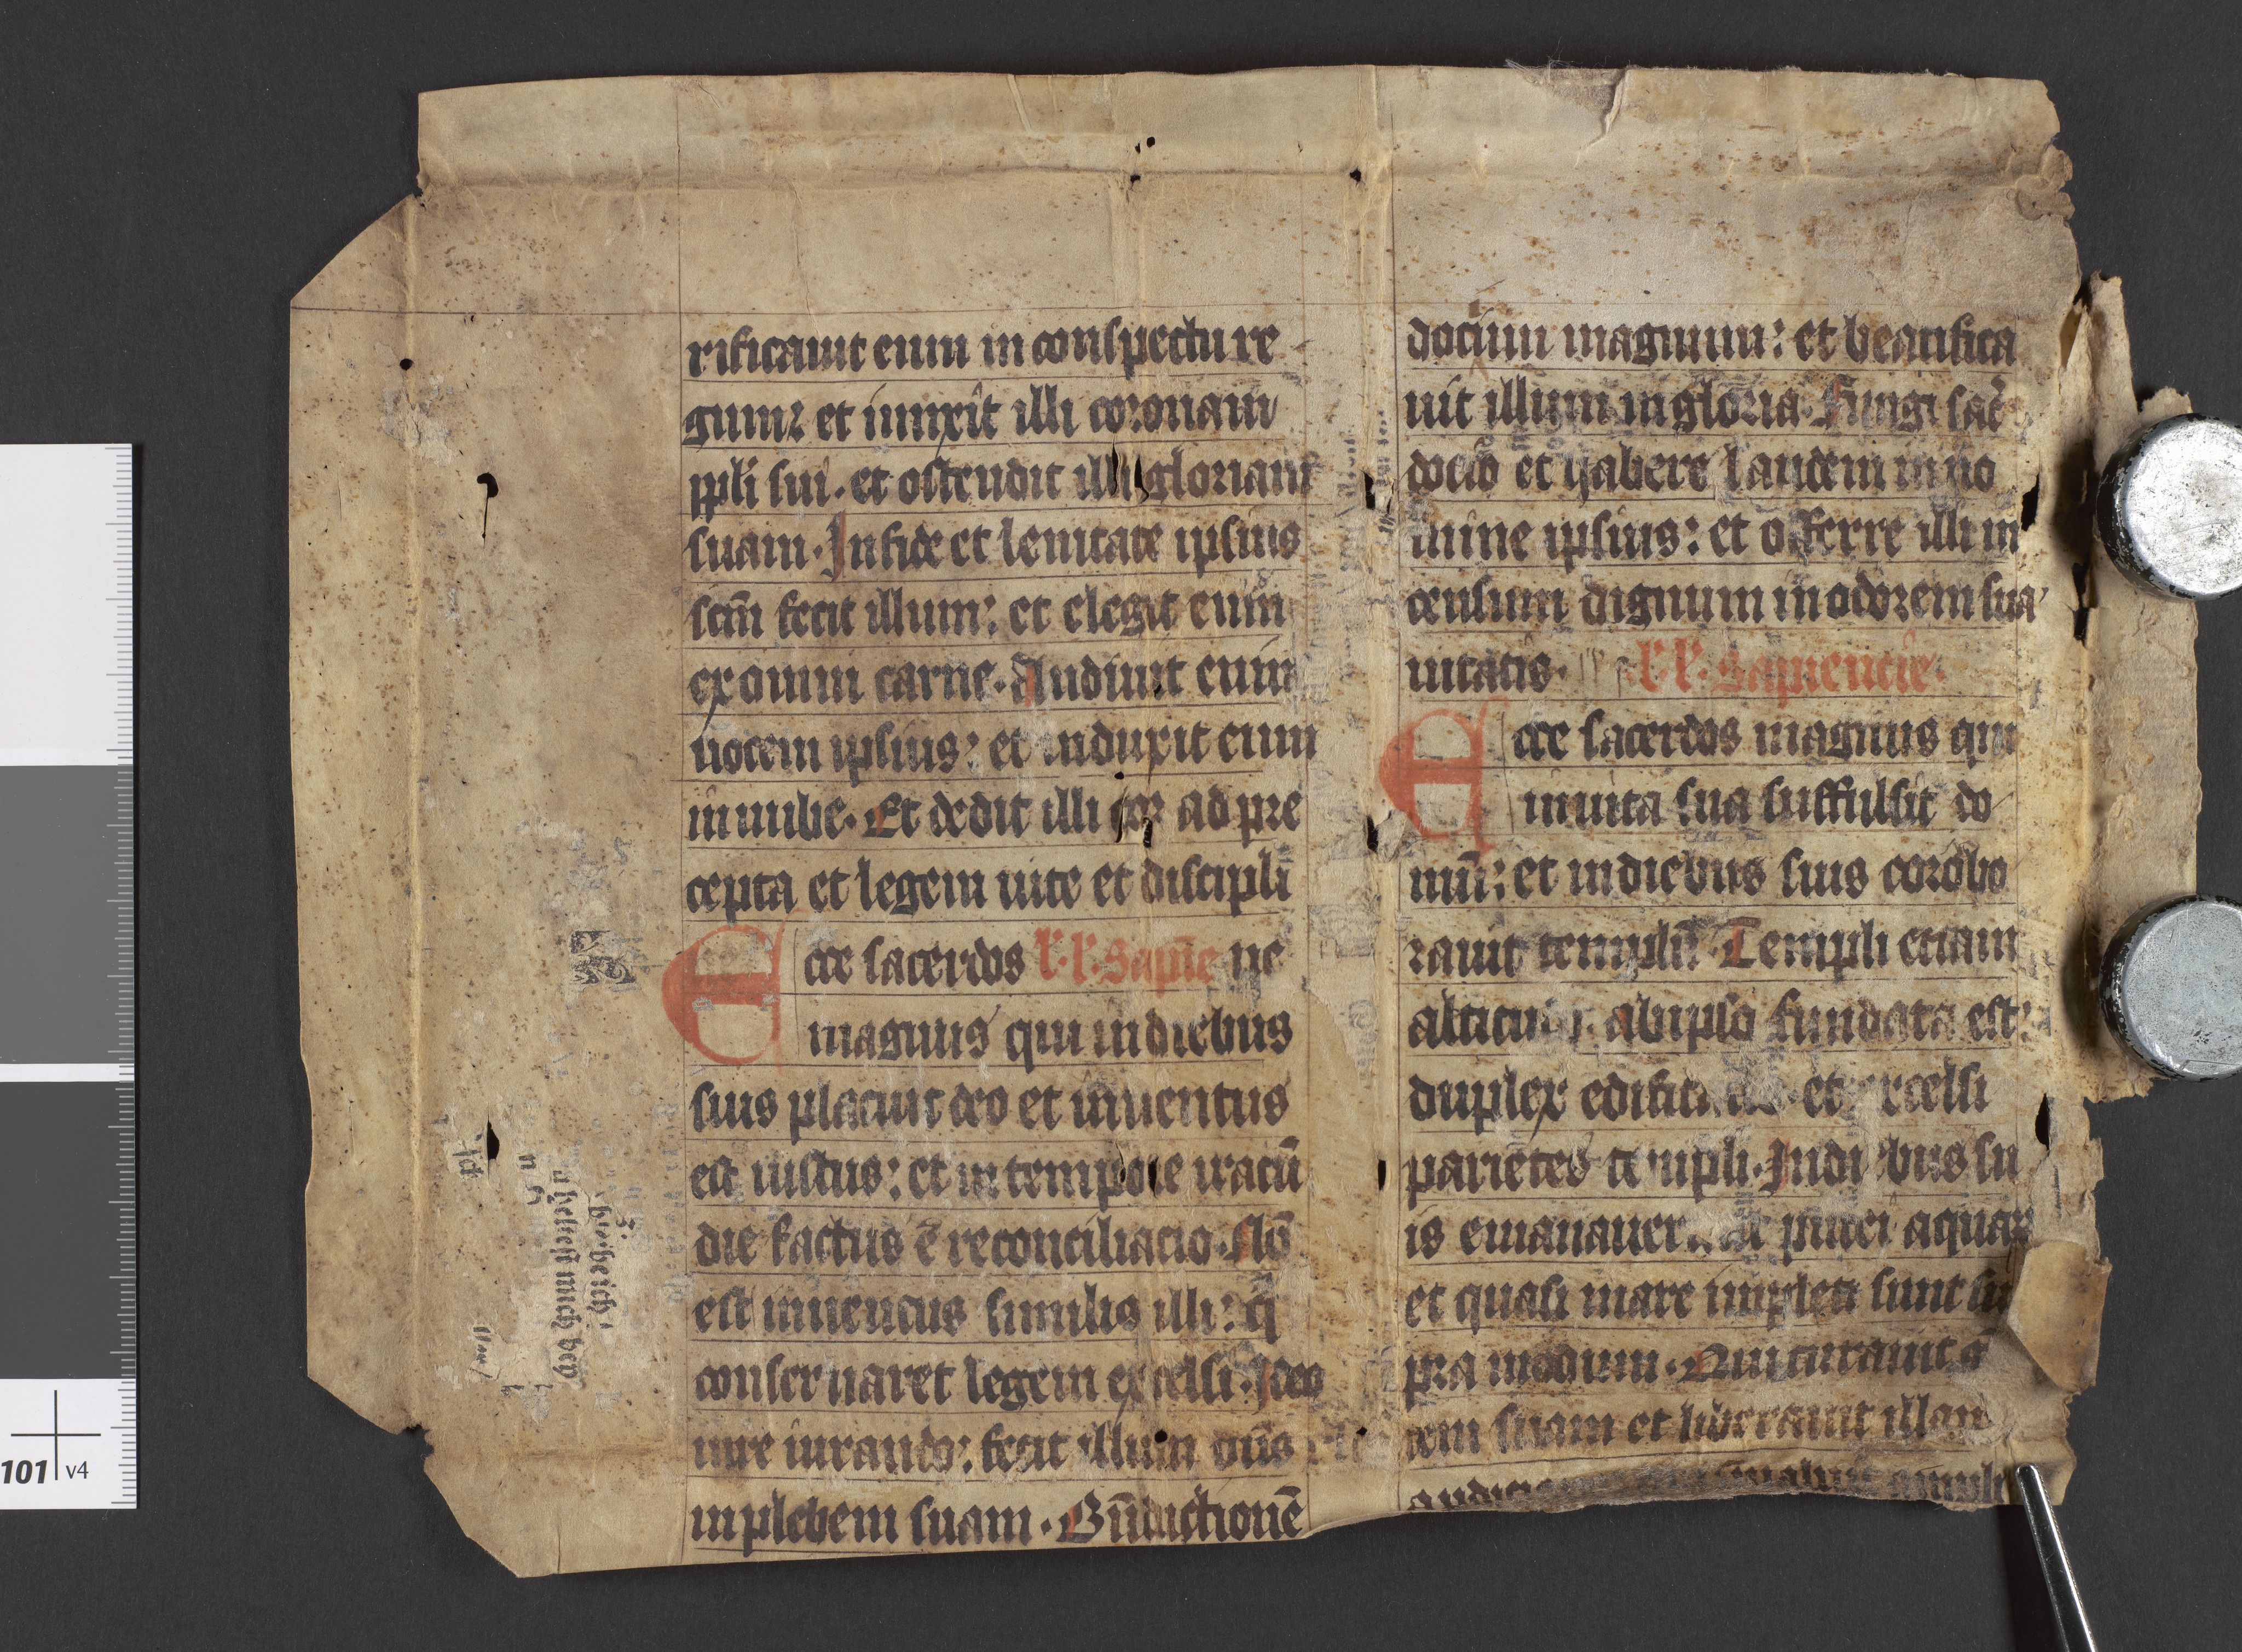 rificauit eum in conspectu re
gum: et iunxit illi coronam
ppli sui. et ostendit illi gloriam
suam. In fide et lenitate ipsius
scm̄ fecit illum: et elegit eum
ex omni carne. Audiuit enim
uocem ipsius: et induxit eum
in nube. Et dedit illi cor ad pre
cepta et legem uite et discipli
Ecce sacerdos l'. l'. Sapiē ne
magnus qui in diebus
suis placuit deo et inuentus
est iustus: et in tempore iracū
die factus ē reconciliacio. Nō
est inuentus similis illi: q̄
conseruaret legem excelsi. Ideo
iure iurando: fecit illum dn̄s
in plebem suam. Bn̄dictionē
docium magnum: et beatifica
uit illum in gloria. Fungi sac̄
docio et habere laudem in no
mine ipsius: et offerre illi in
censum dignum in odorem sua
uitatis. l'. l'. Sapiencie.
Ecce sacerdos magnus qui
in uita sua suffulsit do
mū: et in diebus suis corobo
rauit templū. Templi etiam
altitu ab ipso fundata est:
duplex edific et excelsi
parietes templi. In diebus su
is emanauer putei aquar
et quasi mare impleti sunt su
pra modum. Qui curauit g
tem suam et liberauit illam
101 v4
b̾o.heich
n helfest mich bey